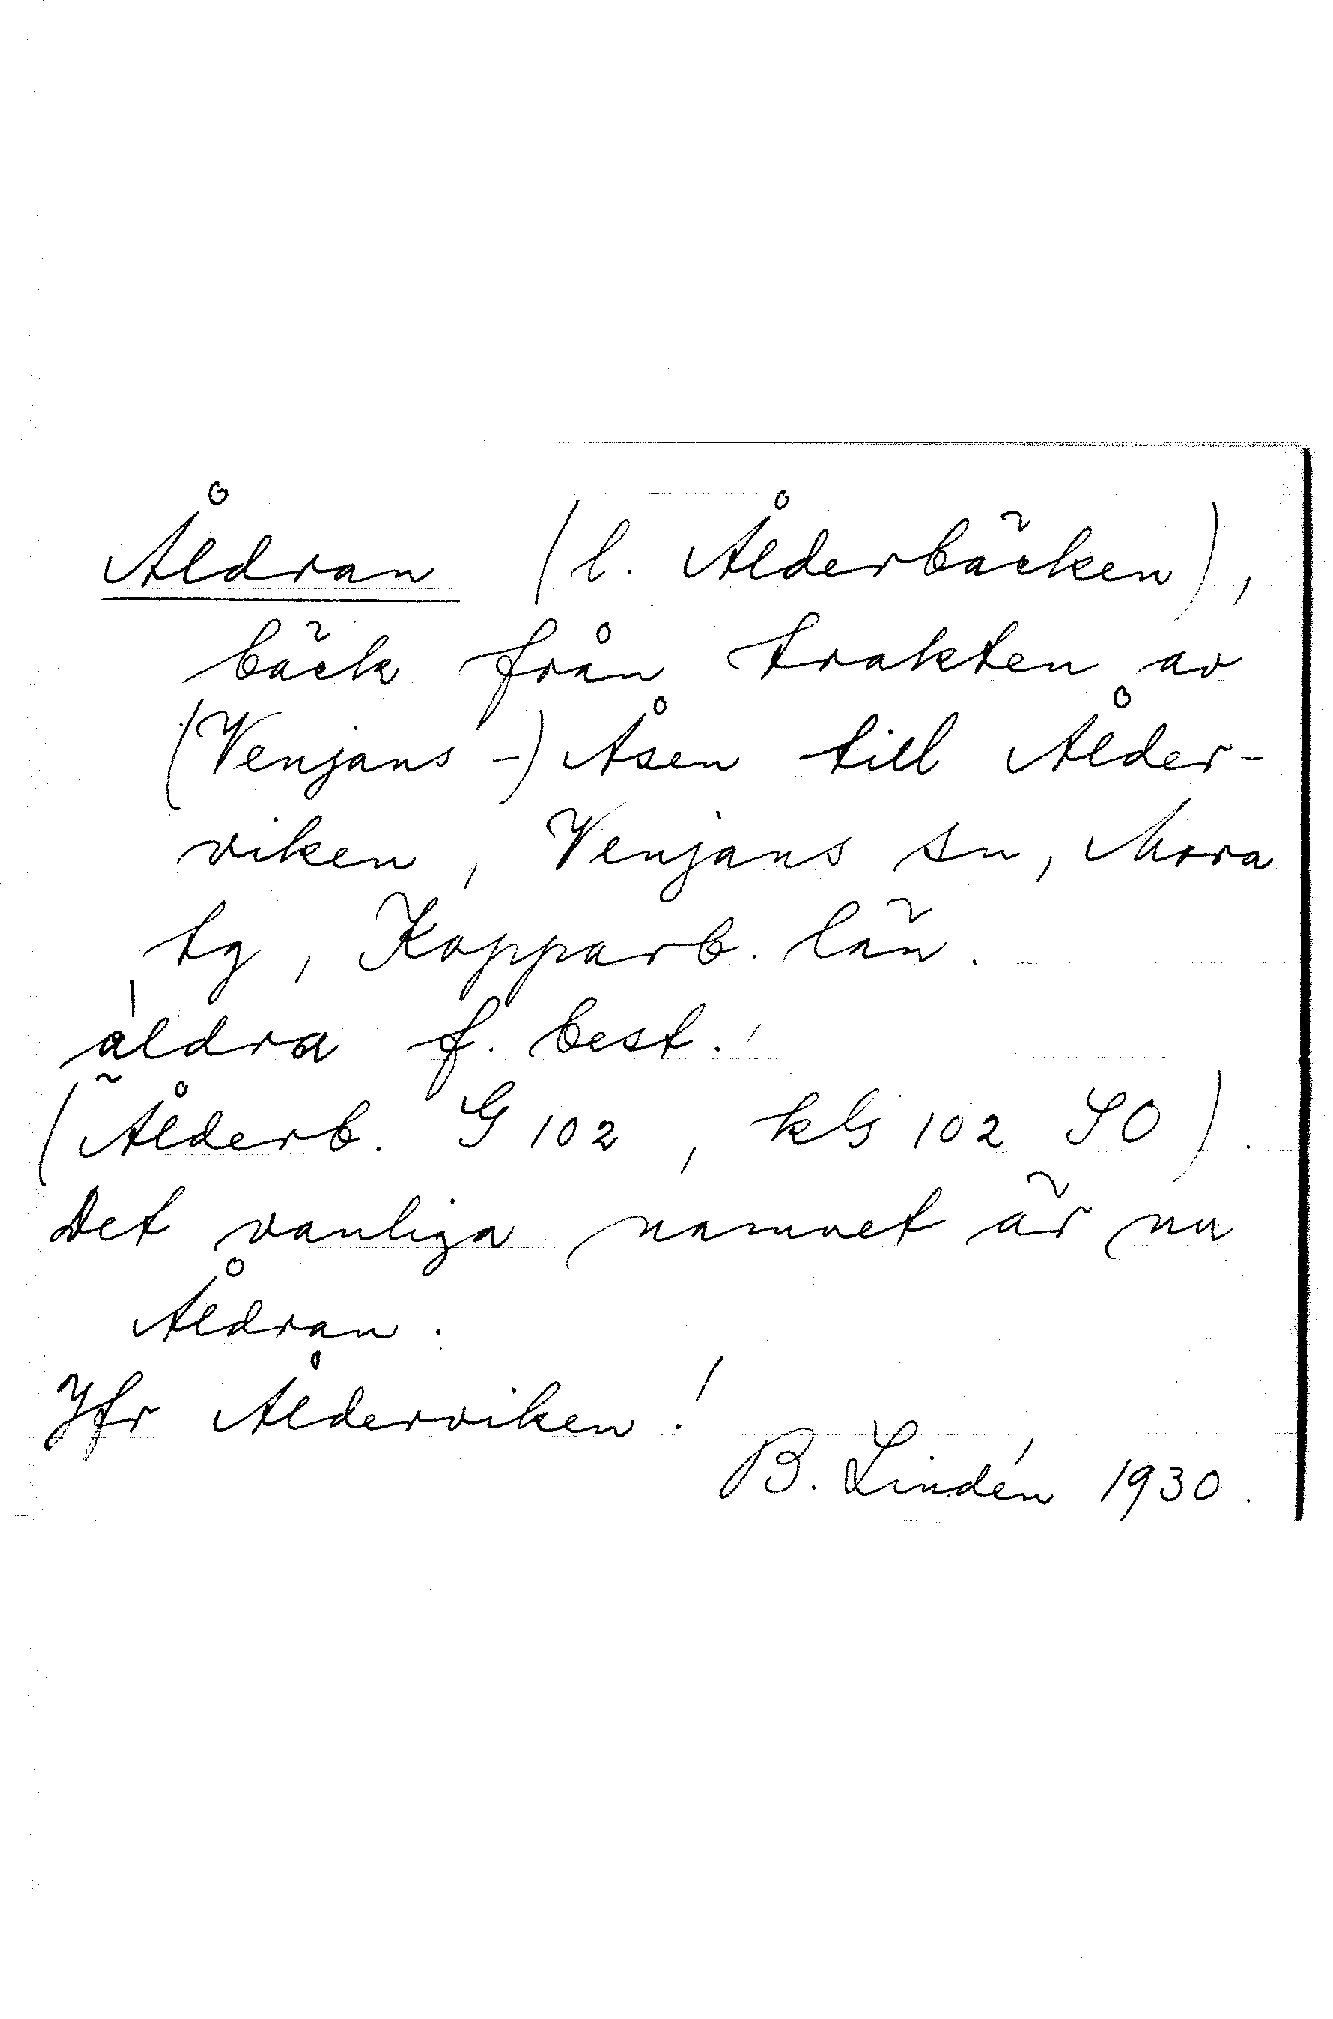 Åldran (l. Ålderbäcken),
bäck från trakten av
(Venjans-) Åsen till Ålder-
viken, Venjans sn, Mora
tg, Kopparb. län.
åldra f. best.
(Ålderb. G 102, kG 102 SO).
Det vanliga namnet är nu
Åldran.
Jfr Ålderviken!
B. Lindén 1930.